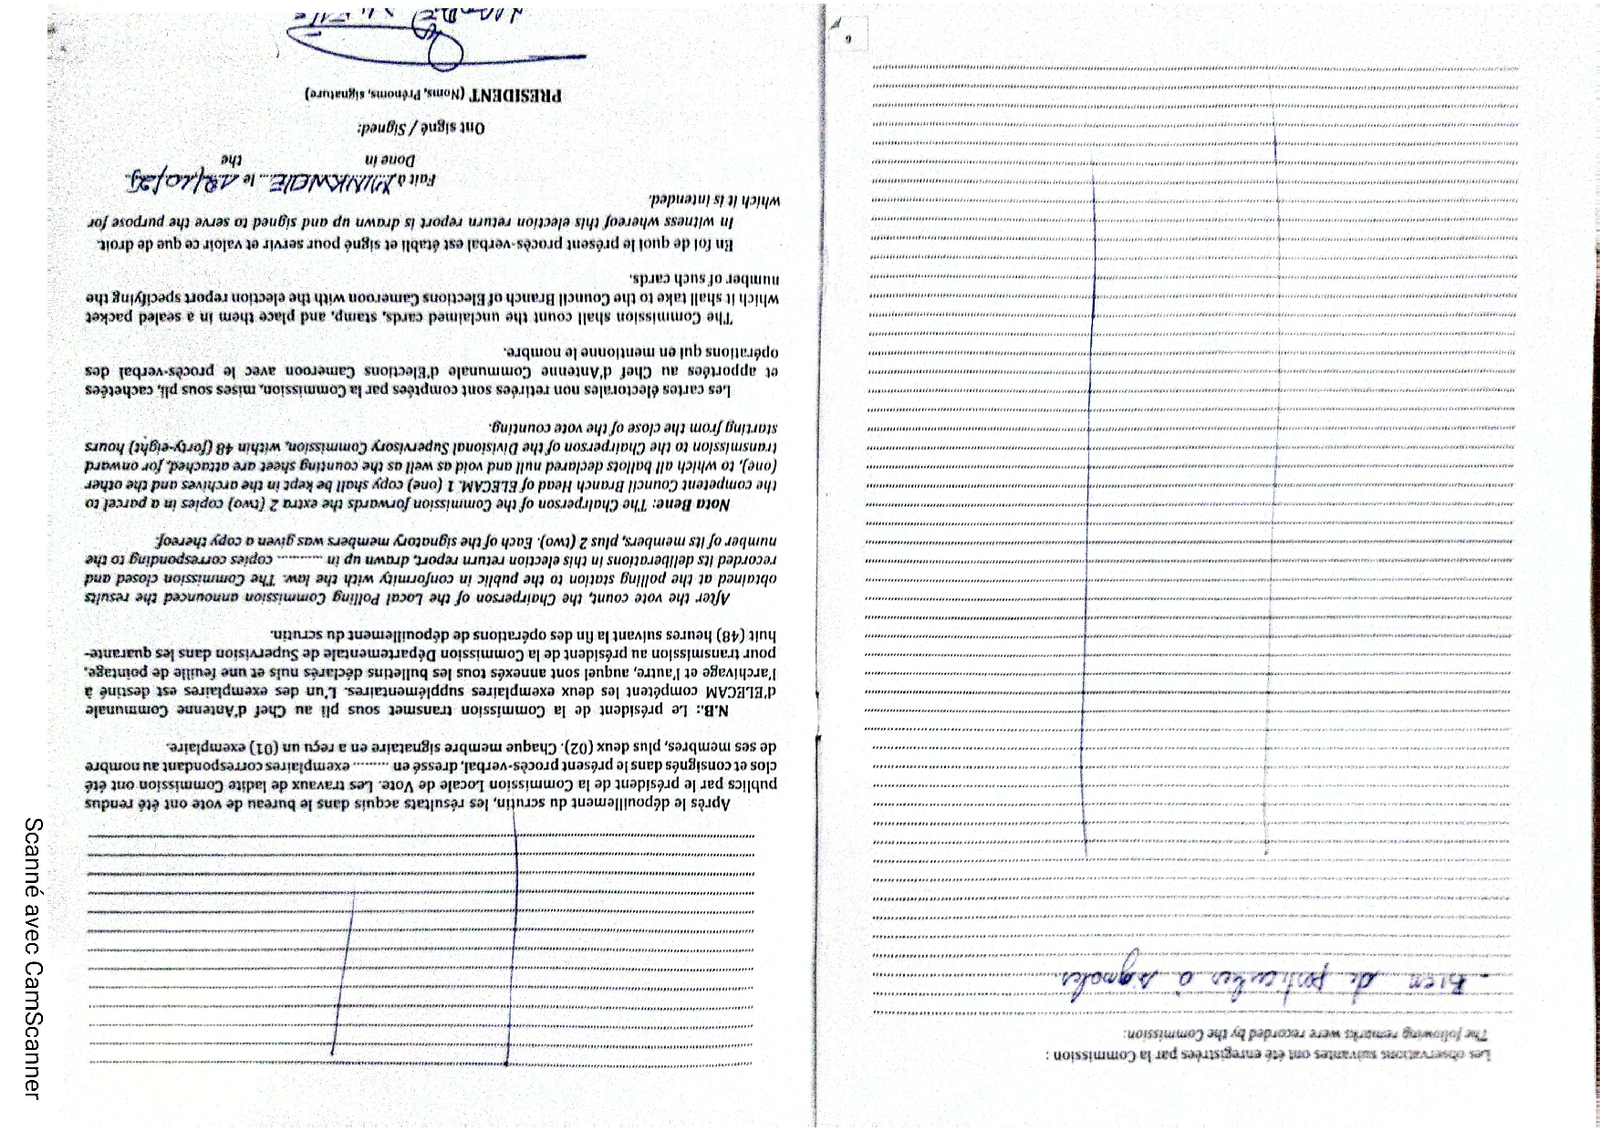 Les observations suivantes ont été enregistrées par la Commission :
The following remarks were recorded by the Commission:
- Rien de particulier à signaler
6
Après le dépouillement du scrutin, les résultats acquis dans le bureau de vote ont été rendus
publics par le président de la Commission Locale de Vote. Les travaux de ladite Commission ont été
clos et consignés dans le présent procès-verbal, dressé en ......... exemplaires correspondant au nombre
de ses membres, plus deux (02). Chaque membre signataire en a reçu un (01) exemplaire.
N.B.: Le président de la Commission transmet sous pli au Chef d'Antenne Communale
d'ELECAM compétent les deux exemplaires supplémentaires. L'un des exemplaires est destiné à
l'archivage et l'autre, auquel sont annexés tous les bulletins déclarés nuls et une feuille de pointage,
pour transmission au président de la Commission Départementale de Supervision dans les quarante-
huit (48) heures suivant la fin des opérations de dépouillement du scrutin.
After the vote count, the Chairperson of the Local Polling Commission announced the results
obtained at the polling station to the public in conformity with the law. The Commission closed and
recorded its deliberations in this election return report, drawn up in ........... copies corresponding to the
number of its members, plus 2 (two). Each of the signatory members was given a copy thereof.
Nota Bene: The Chairperson of the Commission forwards the extra 2 (two) copies in a parcel to
the competent Council Branch Head of ELECAM. 1 (one) copy shall be kept in the archives and the other
(one), to which all ballots declared null and void as well as the counting sheet are attached, for onward
transmission to the Chairperson of the Divisional Supervisory Commission, within 48 (forty-eight) hours
starting from the close of the vote counting.
Les cartes électorales non retirées sont comptées par la Commission, mises sous pli, cachetées
et apportées au Chef d'Antenne Communale d'Elections Cameroon avec le procès-verbal des
opérations qui en mentionne le nombre.
The Commission shall count the unclaimed cards, stamp, and place them in a sealed packet
which it shall take to the Council Branch of Elections Cameroon with the election report specifying the
number of such cards.
En foi de quoi le présent procès-verbal est établi et signé pour servir et valoir ce que de droit.
In witness whereof this election return report is drawn up and signed to serve the purpose for
which it is intended.
Fait à ... le 12/10/25
Done in the
Ont signé / Signed:
PRESIDENT (Noms, Prénoms, signature)
Scanné avec CamScanner